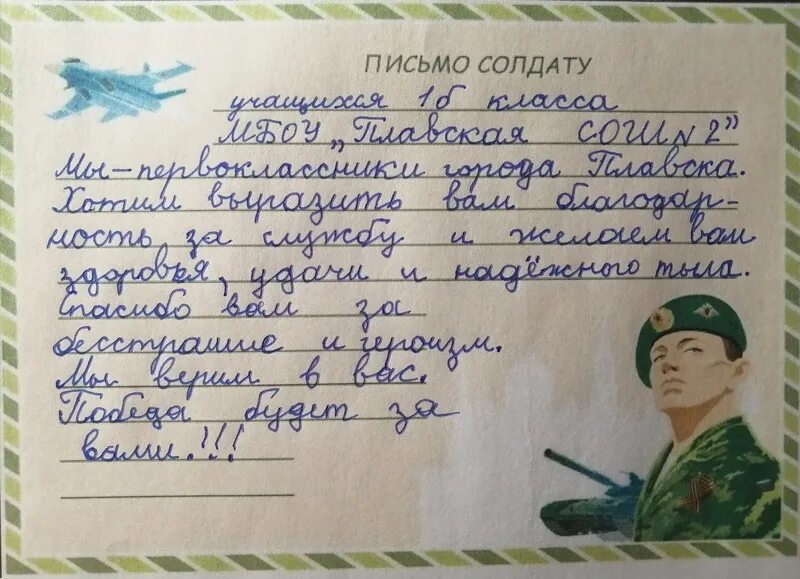 ПИСЬМО СОЛДАТУ
учащихся 1б класса
МБОУ „Плавская СОШ N 2"
Мы-первоклассники города Плавска.
Хотим выразить вам благодар-
ность за службу и желаем вам
здоровья, удачи и надёжного тыла.
Спасибо вам за
бесстрашие и героизм.
Мы верим в вас.
Победа будет за
вами.!!!